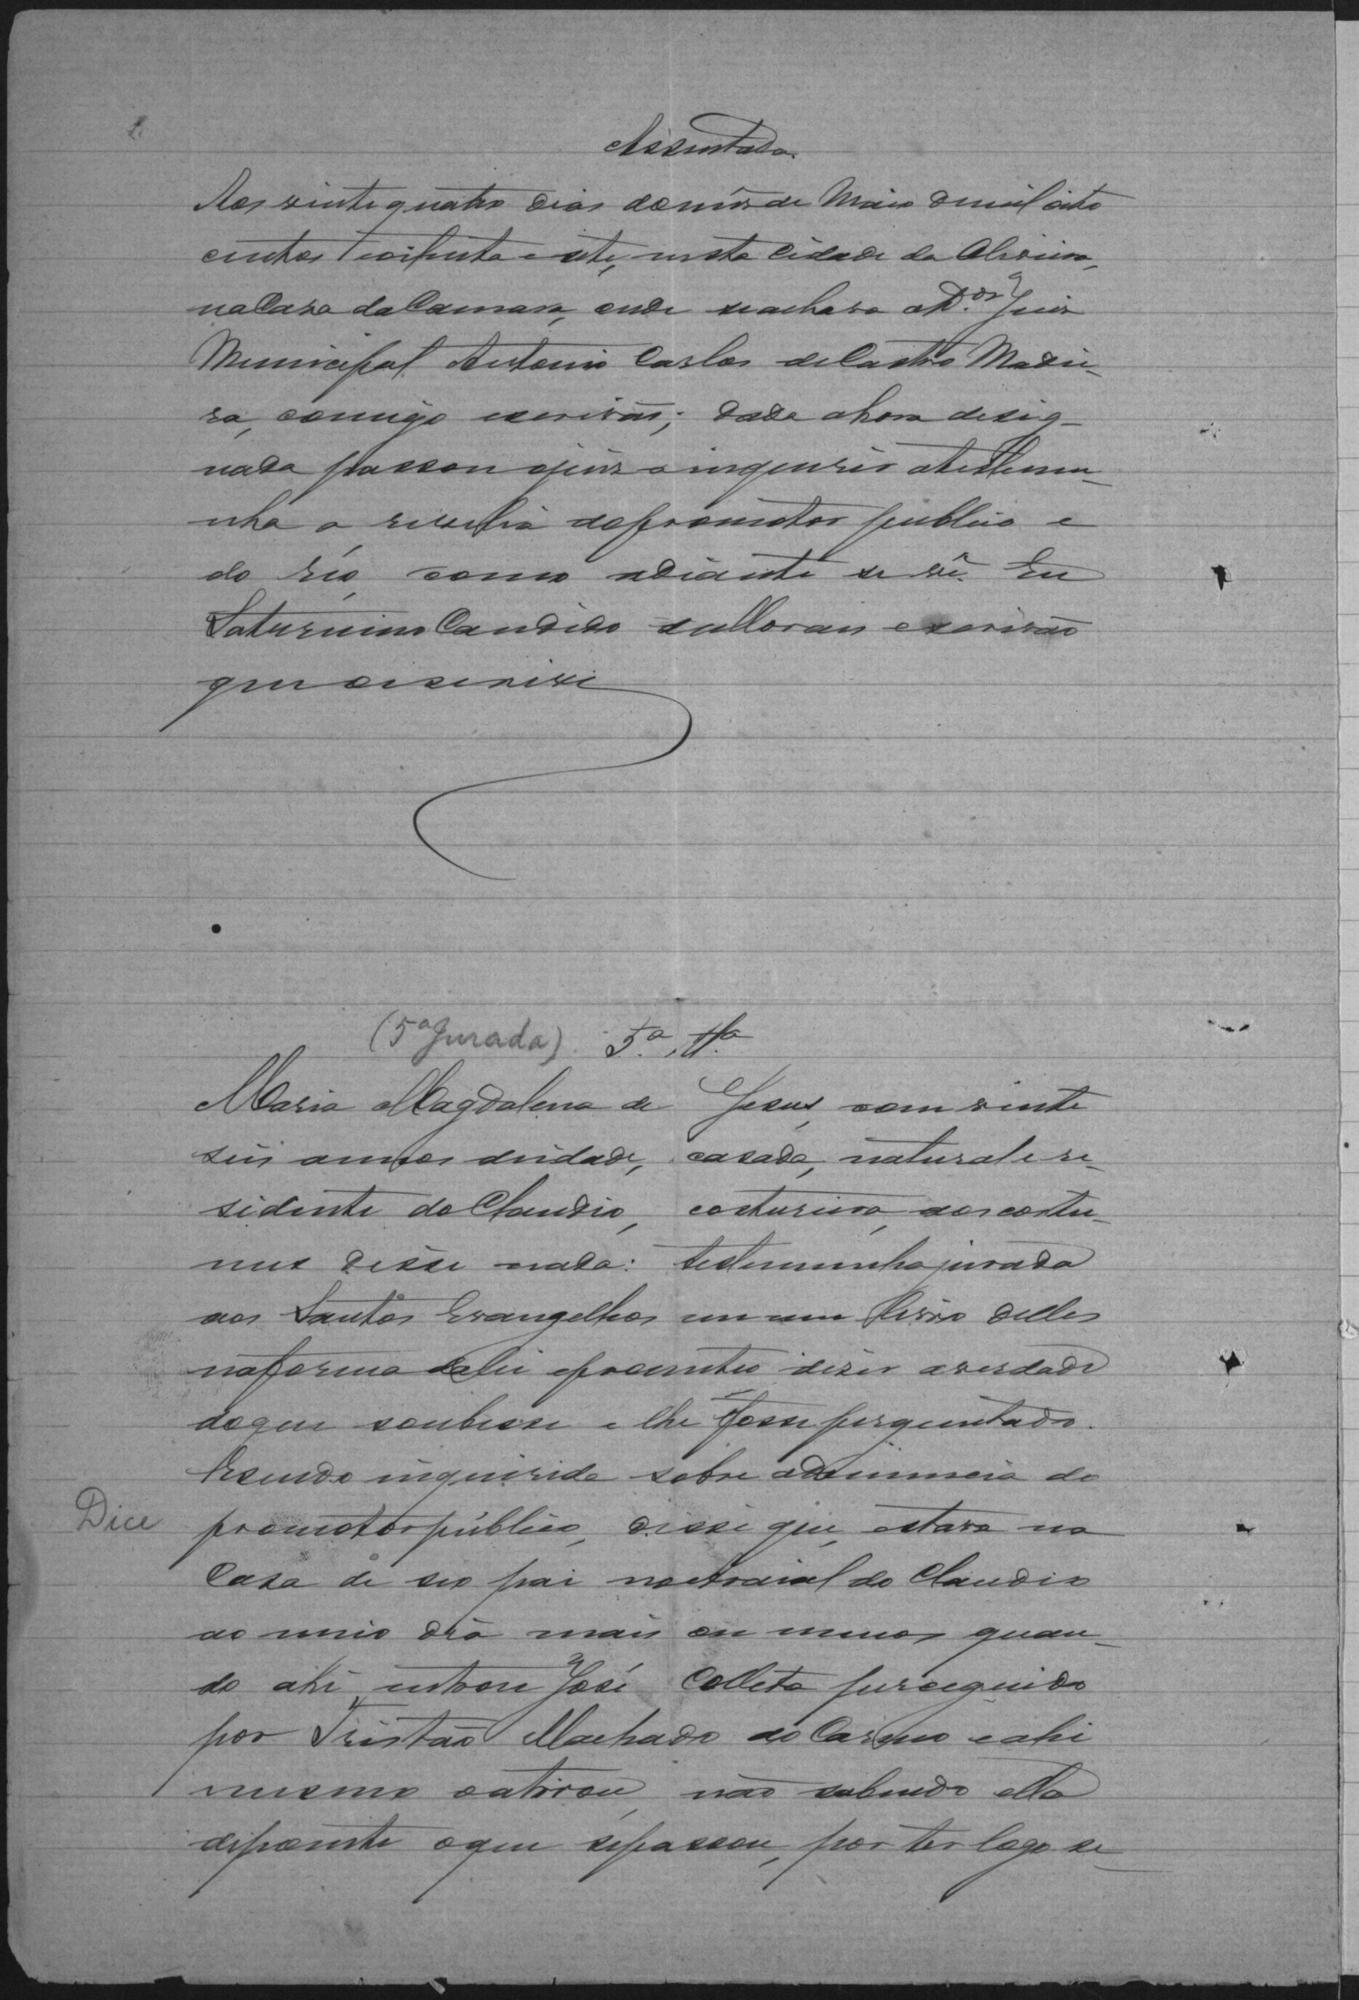 Assentada.
Aos vinte quatro dias do mês de Maio de mil oito
centos oitenta e sete, nesta Cidade da Oliveira,
na Casa da Camara, onde se achava o D.or Juiz
Municipal Antonio Carlos de Castro Madei-
ra, comigo escrivão; dada a hora desig-
nada passou o juiz a inquerir a testemu-
nha a revelia do promotor publico e
do réo, como adiante se vê. Eu
Saturnino Candido escrivão
que o escrevi
(5ª Jurada) 5.ª T.ª
Maria Magdalena de Jesus, com vinte
seis annos de idade, casada, natural e re-
sidente do Claudio, costureira, aos costu-
mes disse nada: testemunha jurada
aos Santos Evangelhos em um livro delles
na forma da lei e prometteo dizer a verdade
do que soubesse e lhe fosse perguntado.
E sendo inquirida sobre a denuncia do
Dice
promotor público, disse que, estava na
Casa de seo pai no arraial do Claudio
ao meio dia mais ou menos quan-
do ahi entrou José Colleta perseguido
por Tristão Machado do Carmo e ahi
mesmo o atirou, não sabendo ella
depoente o que se passou, por ter logo se